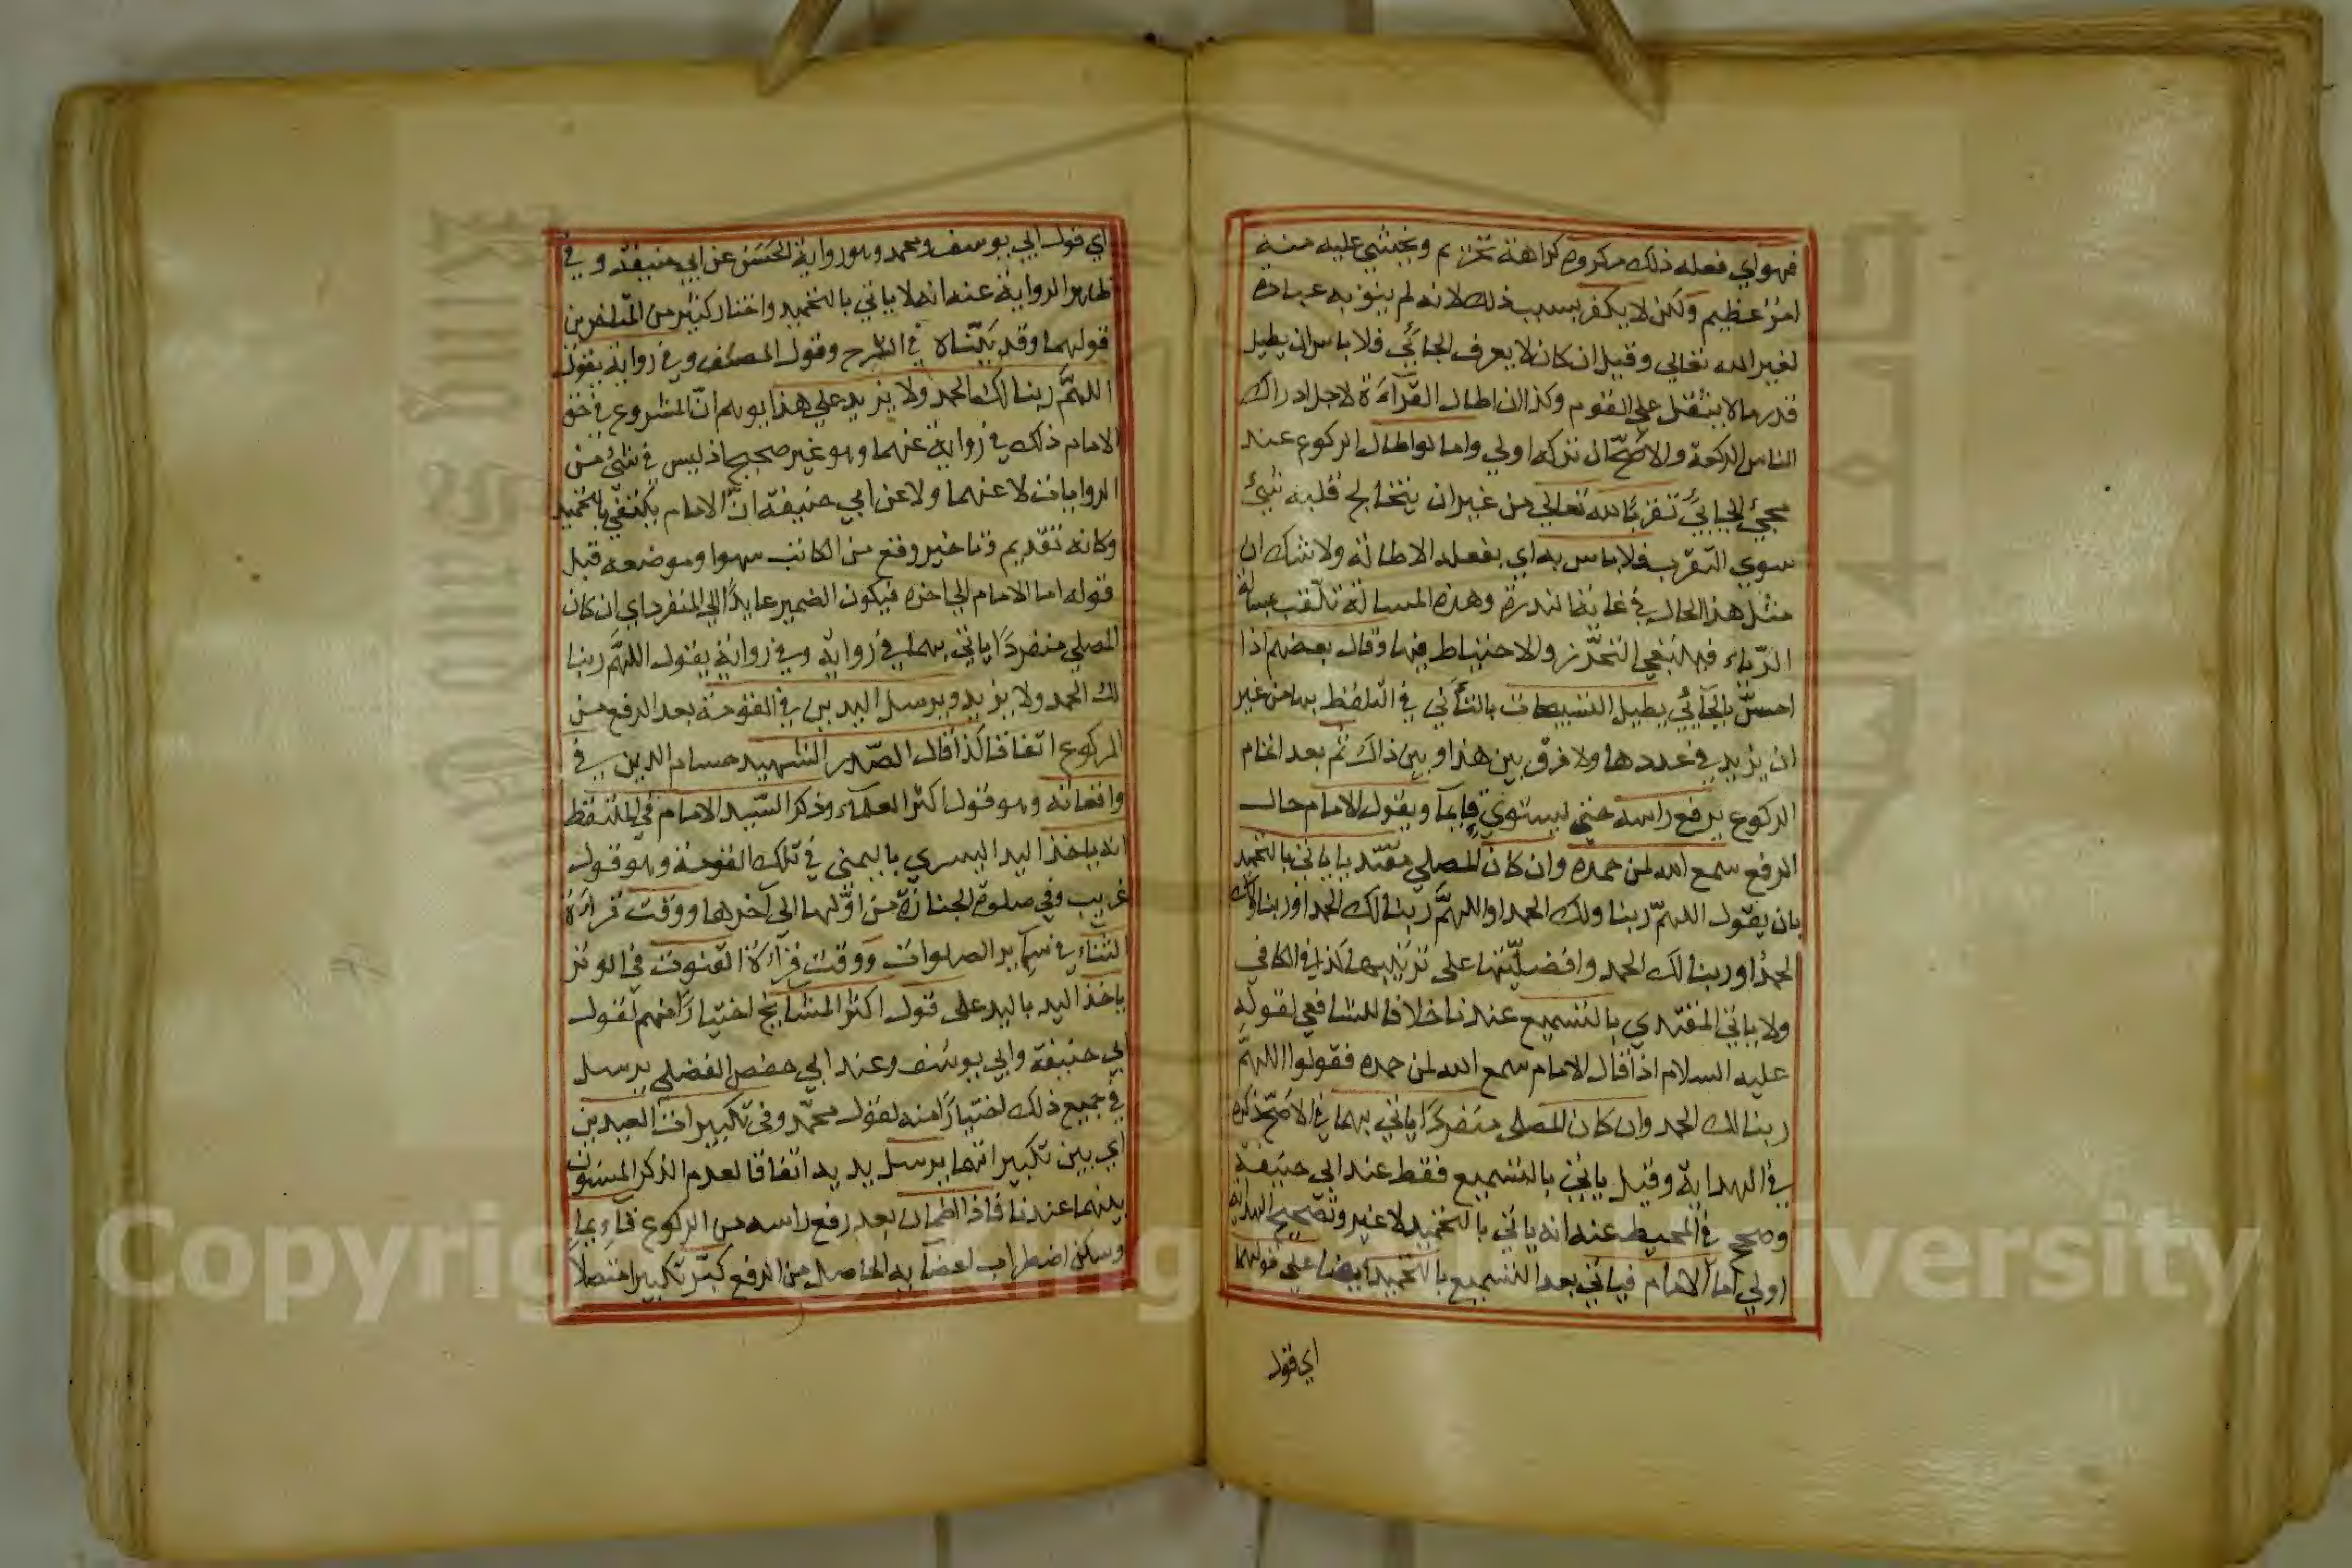 فهو اي فعله ذلك مكروه كراهة تحريم ويخشي عليه منه
امر عظيم ولكن لا يكفر بسبب ذلك لانه لم ينو به عبادة
لغير الله تعالي وقيل ان كان لا يعرف الجائي فلا باس ان يطيل
قدر ما لا يثقل علي القوم وكذا ان اطال القرآءة لاجل ادراك
الناس الركعة والاصح ان تركه اولي واما لو اطال الركوع عند
مجيئ الجائي تقربا لله تعالي من غير ان يتخالج قلبه شيئ
سوي التقرب فلا باس به اي بفعله الاطالة ولا شك ان
مثل هذا الحال في غاية الندرة وهذه المسالة تلقب بمسالة
الرياء فينبغي التحرز والاحتياط فيها وقال بعضهم اذا
احس بالجائي يطيل التسبيحات بالتأني في التلفظ بها من غير
ان يزيد في عددها ولا فرق بين هذا وبين ذاك ثم بعد اتمام
الركوع يرفع راسه حتي يستوي قايما ويقول الامام حال
الرفع سمع الله لمن حمده وان كان المصلي مقتديا ياتي بالتحميد
بان يقول اللهم ربنا ولك الحمد او اللهم ربنا لك الحمد او ربنا ولك
الحمد او ربنا لك الحمد وافضليتها علي ترتيبها كذا في الكافي
ولا ياتي المقتدي بالتسميع عندنا خلافا للشافعي لقوله
عليه السلام اذا قال الامام سمع الله لمن حمده فقولوا اللهم
ربنا لك الحمد وان كان المصلي منفردا ياتي بهما في الاصح ذكره
في الهداية وقيل ياتي بالتسميع فقط عند ابي حنيفة
وصحح في المحيط عنه انه ياتي بالتحميد لا غير وتصحيح الهداية
اولي اما الامام فياتي بعد التسميع بالتحميد ايضا علي قولهما
اي قول
اي قول ابي يوسف ومحمد وهو رواية الحسن عن ابي حنيفة وفي
ظاهر الرواية عنه انه لا ياتي بالتحميد واختار كثير من المتاخرين
قولهما وقد بيناه في الشرح وقول المصنف وفي رواية يقول
اللهم ربنا لك الحمد ولا يزيد علي هذا يوهم ان المشروع في حق
الامام ذلك في رواية عنهما وهو غير صحيح اذ ليس في شئ من
الروايات لا عنهما ولا عن ابي حنيفة ان الامام يكتفي بالتحميد
وكانه تقديم وتاخير وقع من الكاتب سهوا وموضعه قبل
قوله اما الامام الي اخره فيكون الضمير عايدا الي المنفرد اي ان كان
المصلي منفردا ياتي بهما في رواية وفي رواية يقول اللهم ربنا
لك الحمد ولا يزيد ويرسل اليدين في القومة بعد الرفع من
الركوع اتفاقا كذا قال الصدر الشهيد حسام الدين في
واقعاته وهو قول اكثر العلماء وذكر السيد الامام في الملتقط
انه ياخذ اليد اليسري باليمني في تلك القومة وهو قول
غريب وفي صلوة الجنازة من اولها الي آخرها ووقت قراءة
الثناء في سائر الصلوات ووقت قراءة القنوت في الوتر
ياخذ اليد باليد علي قول اكثر المشايخ اختيارا منهم لقول
ابي حنيفة وابي يوسف وعند ابي حفص الفضلي يرسل
في جميع ذلك اختيارا منه لقول محمد وفي تكبيرات العيدين
اي بين تكبيراتهما يرسل يديه اتفاقا لعدم الذكر المسنون
بينهما عندنا فاذا اطمان بعد رفع راسه من الركوع قاءيما
وسكن اضطراب اعضآيه الحاصل من الرفع كبر تكبيرا متصلا